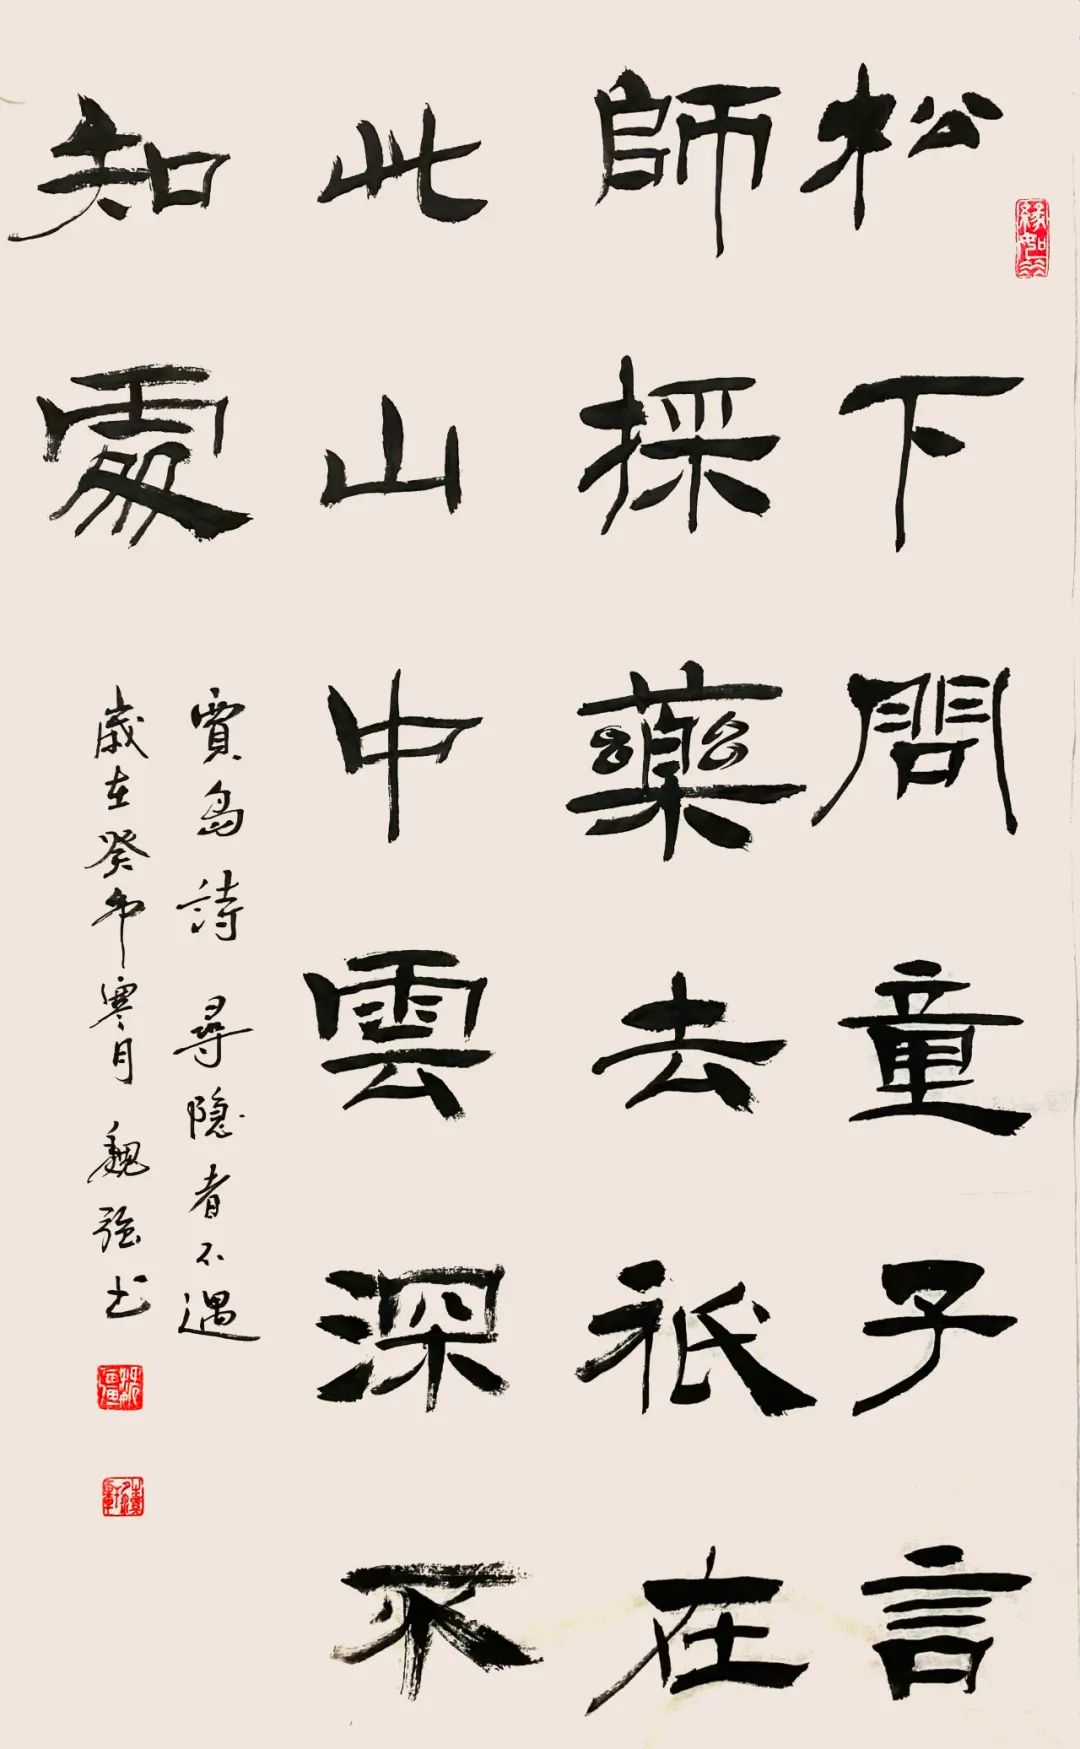 松下問童子言
師採藥去祇在
此山中雲深不
知處
賈島詩 尋隐者不遇
歳在癸卯寒月 魏强书